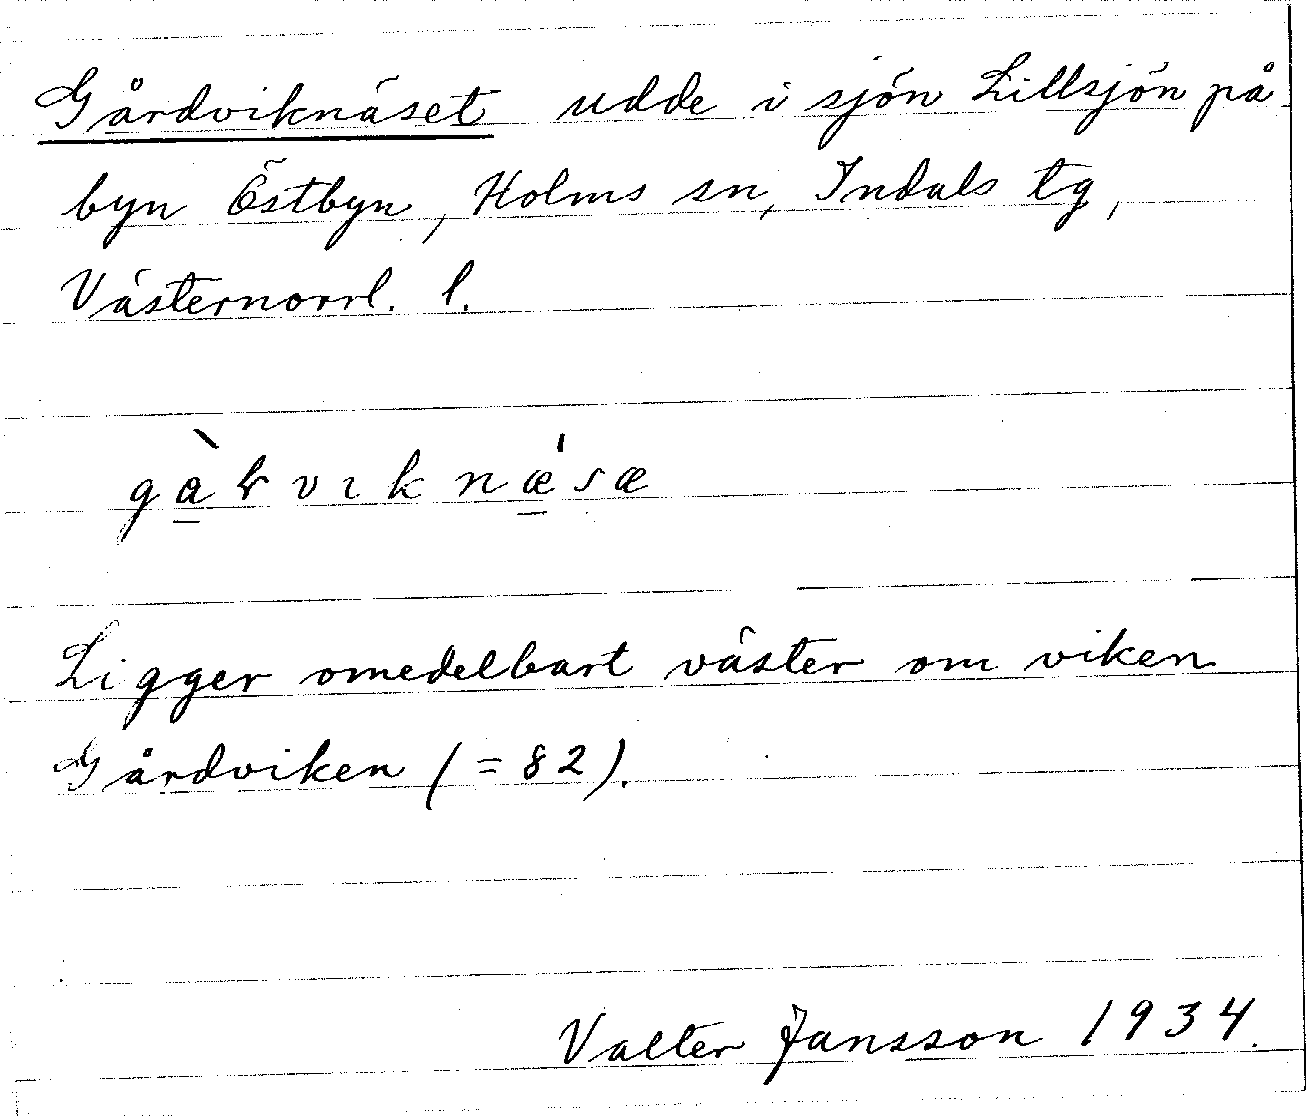 Gårdviknäset udde i sjön Lillsjön på
byn Östbyn, Holms sn, Indals tg,
Västernorrl. l.
Ligger omedelbart väster om viken
Gårdviken (= 82).
Valter Jansson 1934.